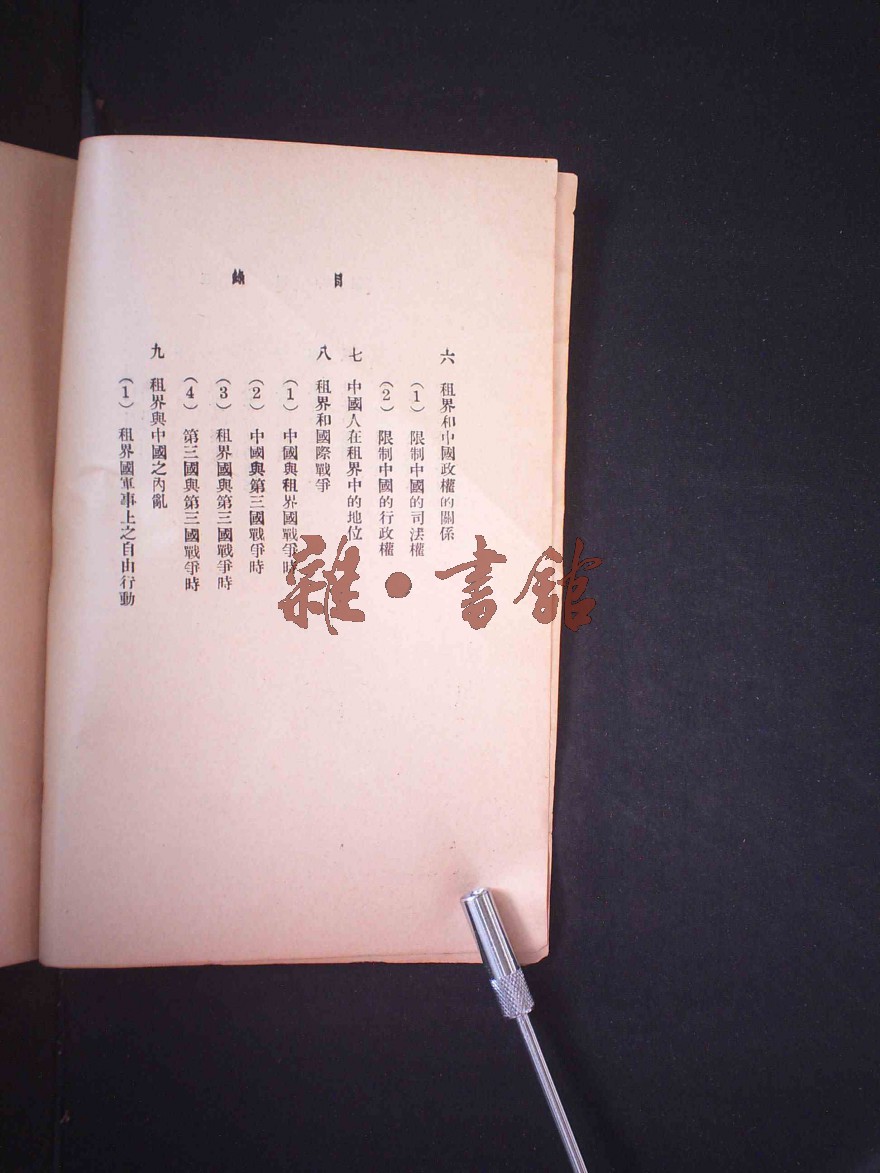 目錄
六 租界和中國政權的關係
(1) 限制中國的司法權
(2) 限制中國的行政權
七 中國人在租界中的地位
八 租界和國際戰爭
(1) 中國與租界國戰爭時
(2) 中國與第三國戰爭時
(3) 租界國與第三國戰爭時
(4) 第三國與第三國戰爭時
九 租界與中國之內亂
(1) 租界國軍事上之自由行動
雜·書館